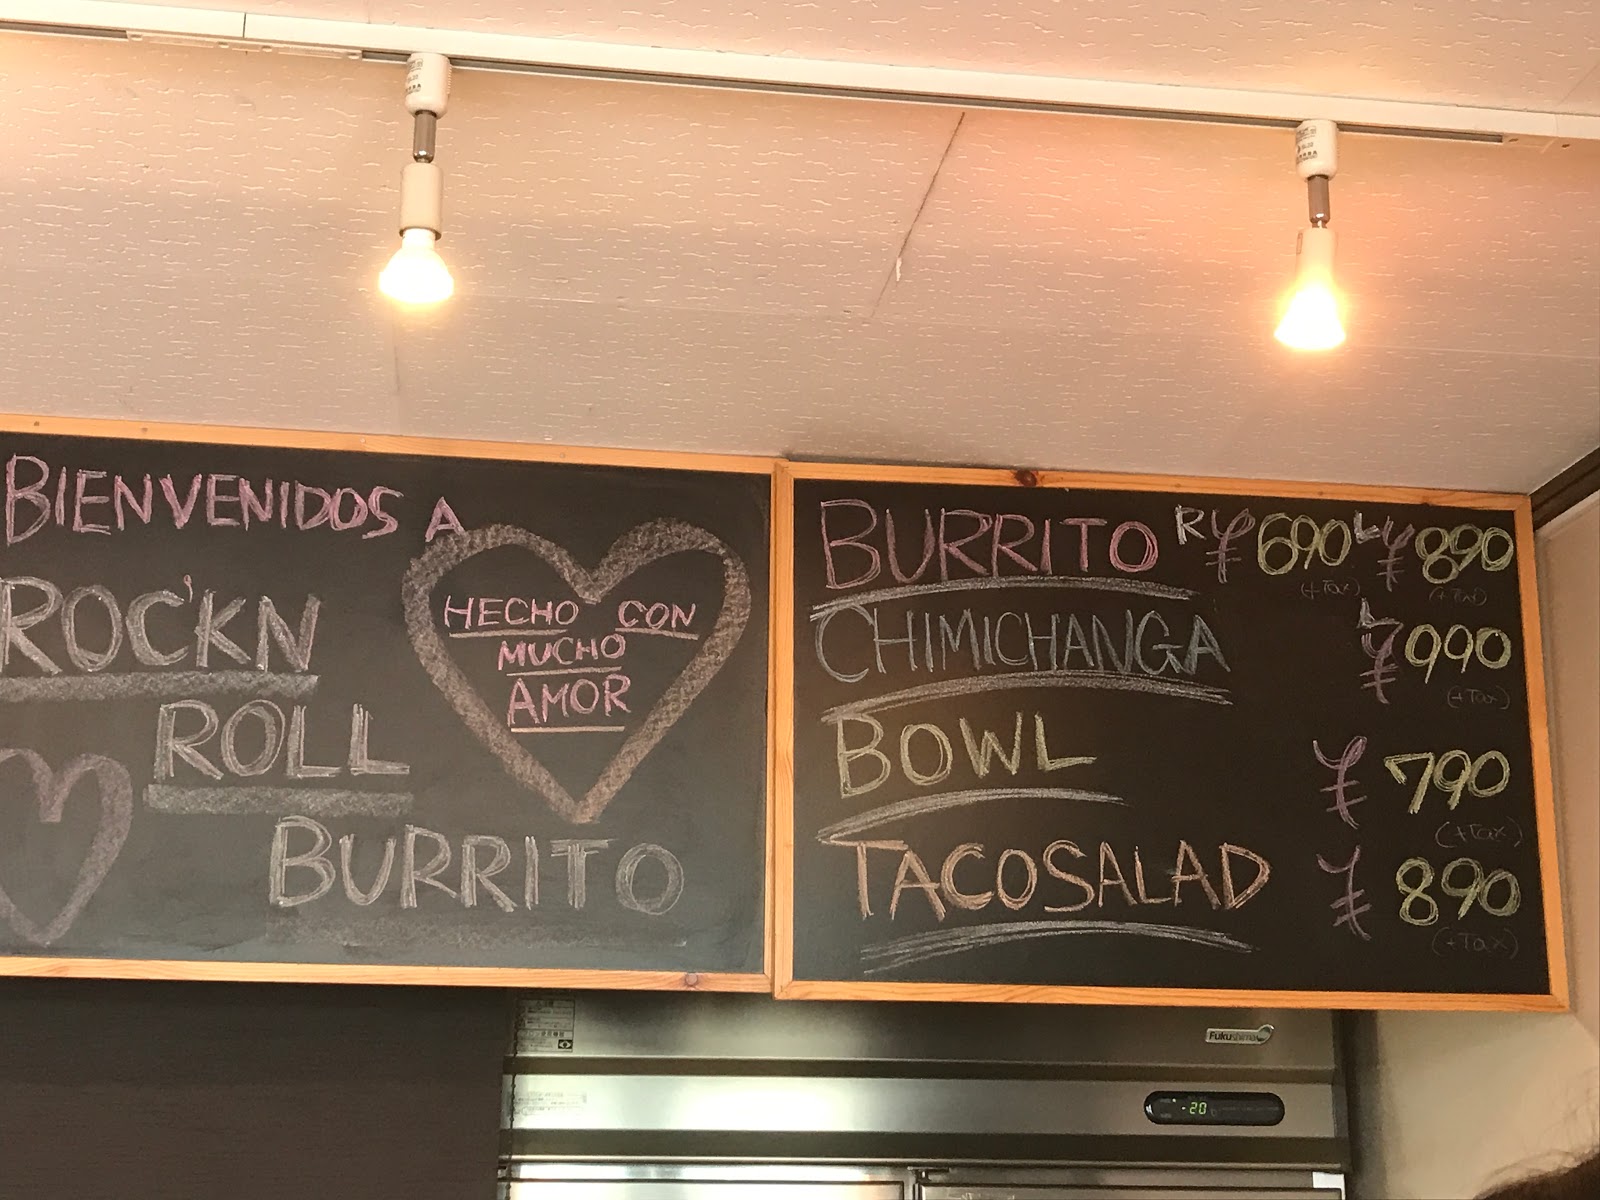 BIENVENIDOS A
ROC'KN
ROLL
BURRITO
HECHO CON
MUCHO
AMOR
BURRITO R ¥690 L ¥890
(+Tax) (+Tax)
CHIMICHANGA L ¥990
(+Tax)
BOWL ¥790
(+Tax)
TACOSALAD ¥890
(+Tax)
Fukushima
-20